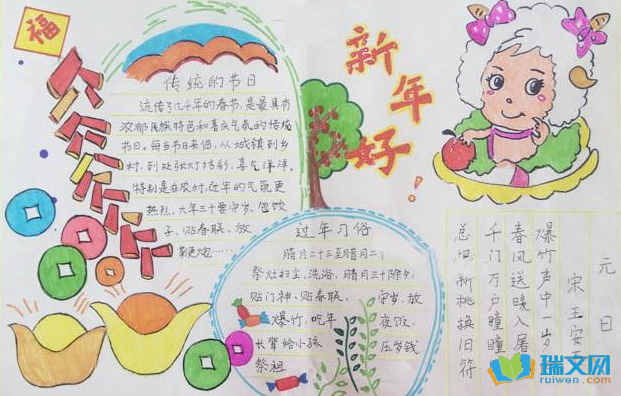 福
传统的节日
流传了几千年的春节,是最具有
浓郁民族特色和喜庆气氛的传统
节日。每当节日来临,从城镇到乡
村,到处张灯结彩,喜气洋洋。
特别是在农村,过年的气氛更
热烈,大年三十要守岁、包饺
子、贴春联、放
新年好!
过年习俗
腊月二十三至腊月二
祭灶扫尘、洗浴、腊月三十除夕
贴门神、贴春联、守岁、放
爆竹,吃年夜饭,
长辈给小孩压岁钱
祭祖
元日
宋 王安
爆竹声中一岁
春风送暖入屠
千门万户瞳瞳
总把新桃换旧符
瑞文网
ruiwen.com